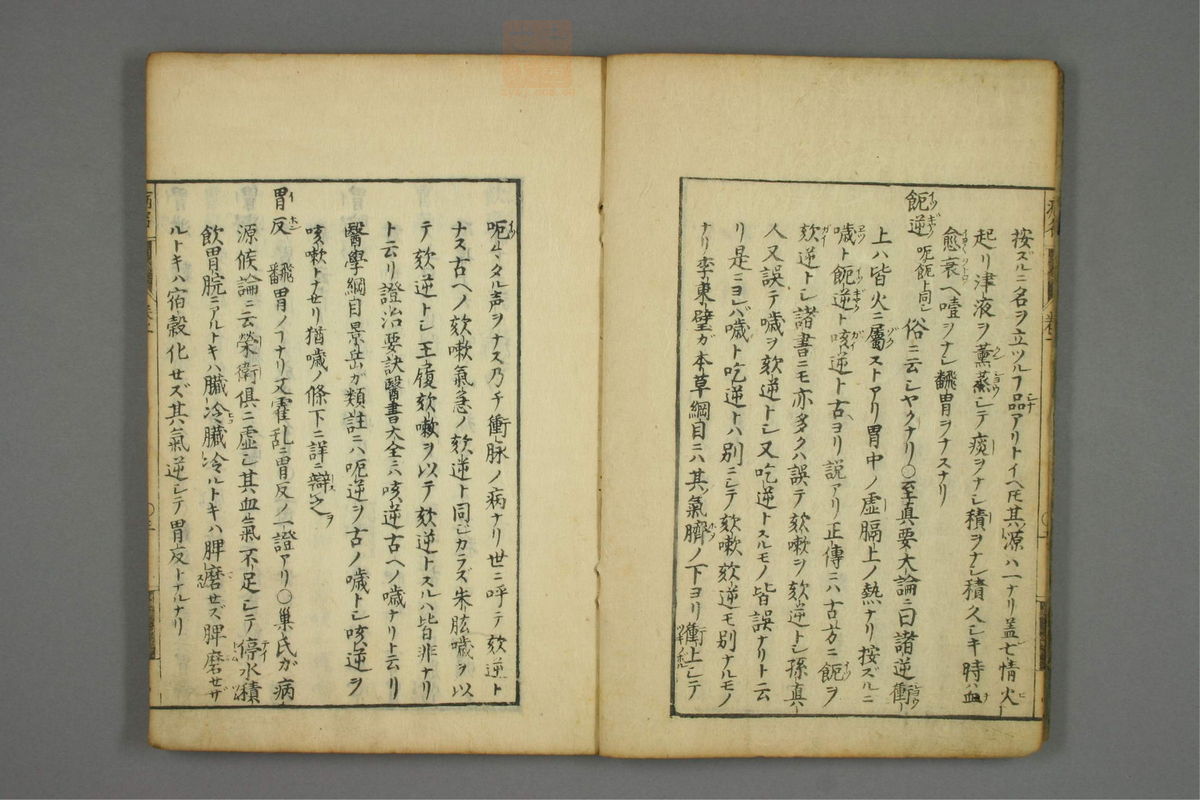 按ズルニ名ヲ立ツルヿ品アリトイヘ𪜈其源ハ一ナリ蓋七情火
起リ津液ヲ薫蒸シテ痰ヲナシ積ヲナシ積久シキ時ハ血
愈衰ヘ噎ヲナシ飜胃ヲナスナリ
䭇逆 呃䭇ト同シ 俗ニ云シヤクナリ〇至真要大論ニ曰諸逆衝
上ハ皆火ニ屬ストアリ胃中ノ虚膈上ノ熱ナリ按ズルニ
噦ト䭇逆ト咳逆ト古ヨリ説アリ正傳ニハ古方ニ䭇ヲ
欬逆トシ諸書ニモ亦多クハ誤テ欬嗽ヲ欬逆トシ孫真
人又誤テ噦ヲ欬逆トシ又吃逆トスルモノ皆誤ナリト云
リ是ニヨレバ噦ト吃逆トハ別ニシテ欬嗽欬逆モ別ナルモノ
ナリ李東壁ガ本草綱目ニハ其氣臍ノ下ヨリ衝上シテ
呃ミタル声ヲナス乃チ衝脉ノ病ナリ世ニ呼テ欬逆ト
ナス古ヘノ欬嗽氣急ノ欬逆ト同シカラズ朱肱噦ヲ以
テ欬逆トシ王履欬嗽ヲ以テ欬逆トスルハ皆非ナリ
ト云リ證治要訣醫書大全ニハ咳逆古ヘノ噦ナリト云リ
醫學綱目景岳ガ類註ニハ呃逆ヲ古ノ噦トシ咳逆ヲ
咳嗽トナセリ猶噦ノ條下ニ詳ニ辯之
胃反 飜胃ノヿナリ又霍乱ニ胃反ノ一證アリ〇巢氏ガ病
源候論ニ云榮衛俱ニ虚シ其血氣不足シテ停水積
飲胃脘ニアルトキハ臓冷臓冷ルトキハ脾磨セズ脾磨セザ
ルトキハ宿穀化セズ其氣逆シテ胃反トナルナリ